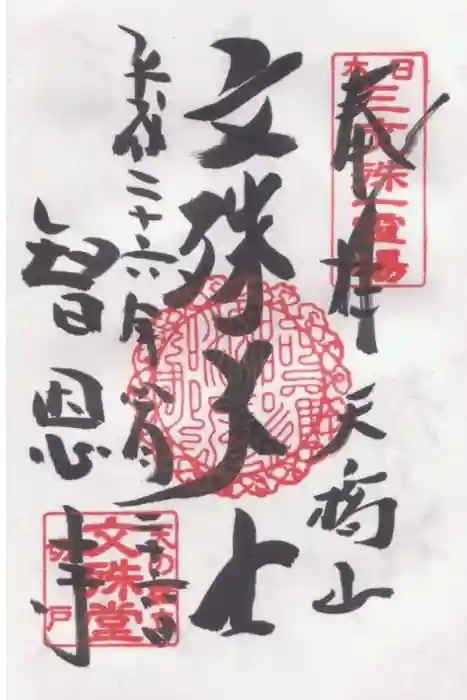 奉拝
天橋山
日本三文殊一霊場
文殊大士
平成二十六年四月二十六日
智恩寺
天の橋立
文殊堂
切戸